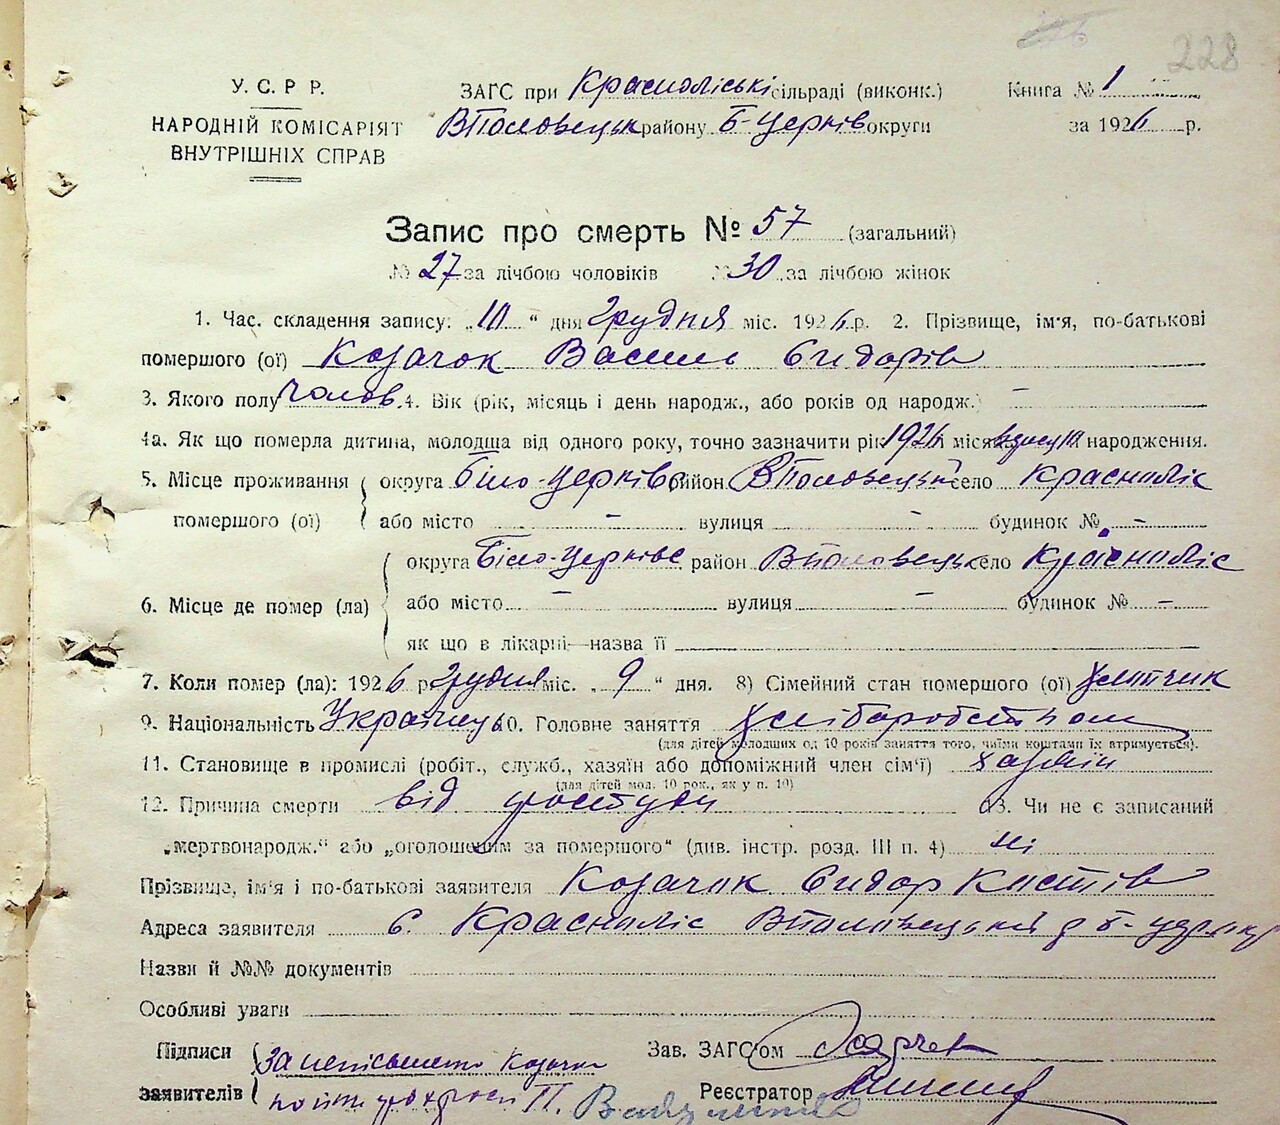 228
У. С. Р Р.
НАРОДНІЙ КОМІСАРІЯТ
ВНУТРІШНІХ СПРАВ
ЗАГС при Краснолі­ські сільраді (виконк.)
ВПоловецьк району Б-Церків округи
Книга № 1
за 1926 р.
Запис про смерть № 57 (загальний)
№ 27 за лічбою чоловіків № 30 за лічбою жінок
1. Час. складення запису: „10" дня Грудня міс. 1926 р. 2. Прізвище, ім'я, по-батькові
помершого (ої) Козачок Василь Сидорів
3. Якого полу Чолов. 4. Вік (рік, місяць і день народж., або років од народж.) –
4а. Як що померла дитина, молодша від одного року, точно зазначити рік 1926 місяць народження.
5. Місце проживання помершого (ої) округа Біло-Церків район ВПоловецьк село Краснолі­с
або місто – вулиця – будинок № –
6. Місце де помер (ла) округа Біло-Церківс район ВПоловецьк село Красноліс
або місто – вулиця – будинок № –
як що в лікарні—назва її
7. Коли помер (ла): 1926 р Грудня міс. „9" дня. 8) Сімейний стан помершого (ої) хлопчик
9. Національність Українец 10. Головне заняття хліборобством
(для дітей молодших од 10 років заняття того, чиїми коштами їх втримується).
11. Становище в промислі (робіт., служб., хазяїн або допоміжний член сім'ї) хазяїн
(для дітей мол. 10 рок., як у п. 10)
12. Причина смерти від простуди 13. Чи не є записаний
„мертвонародж." або „оголошеним за помершого" (див. інстр. розд. III п. 4) ні
Прізвище, ім'я і по-батькові заявителя Козачок Сидор Костів
Адреса заявителя с. Красноліс ВПоловецький р Б-Церківщ
Назви й №№ документів
Особливі уваги
Підписи заявителів За неписьменого Козачка
по його проханю П.
Зав. ЗАГС'ом
Реєстратор